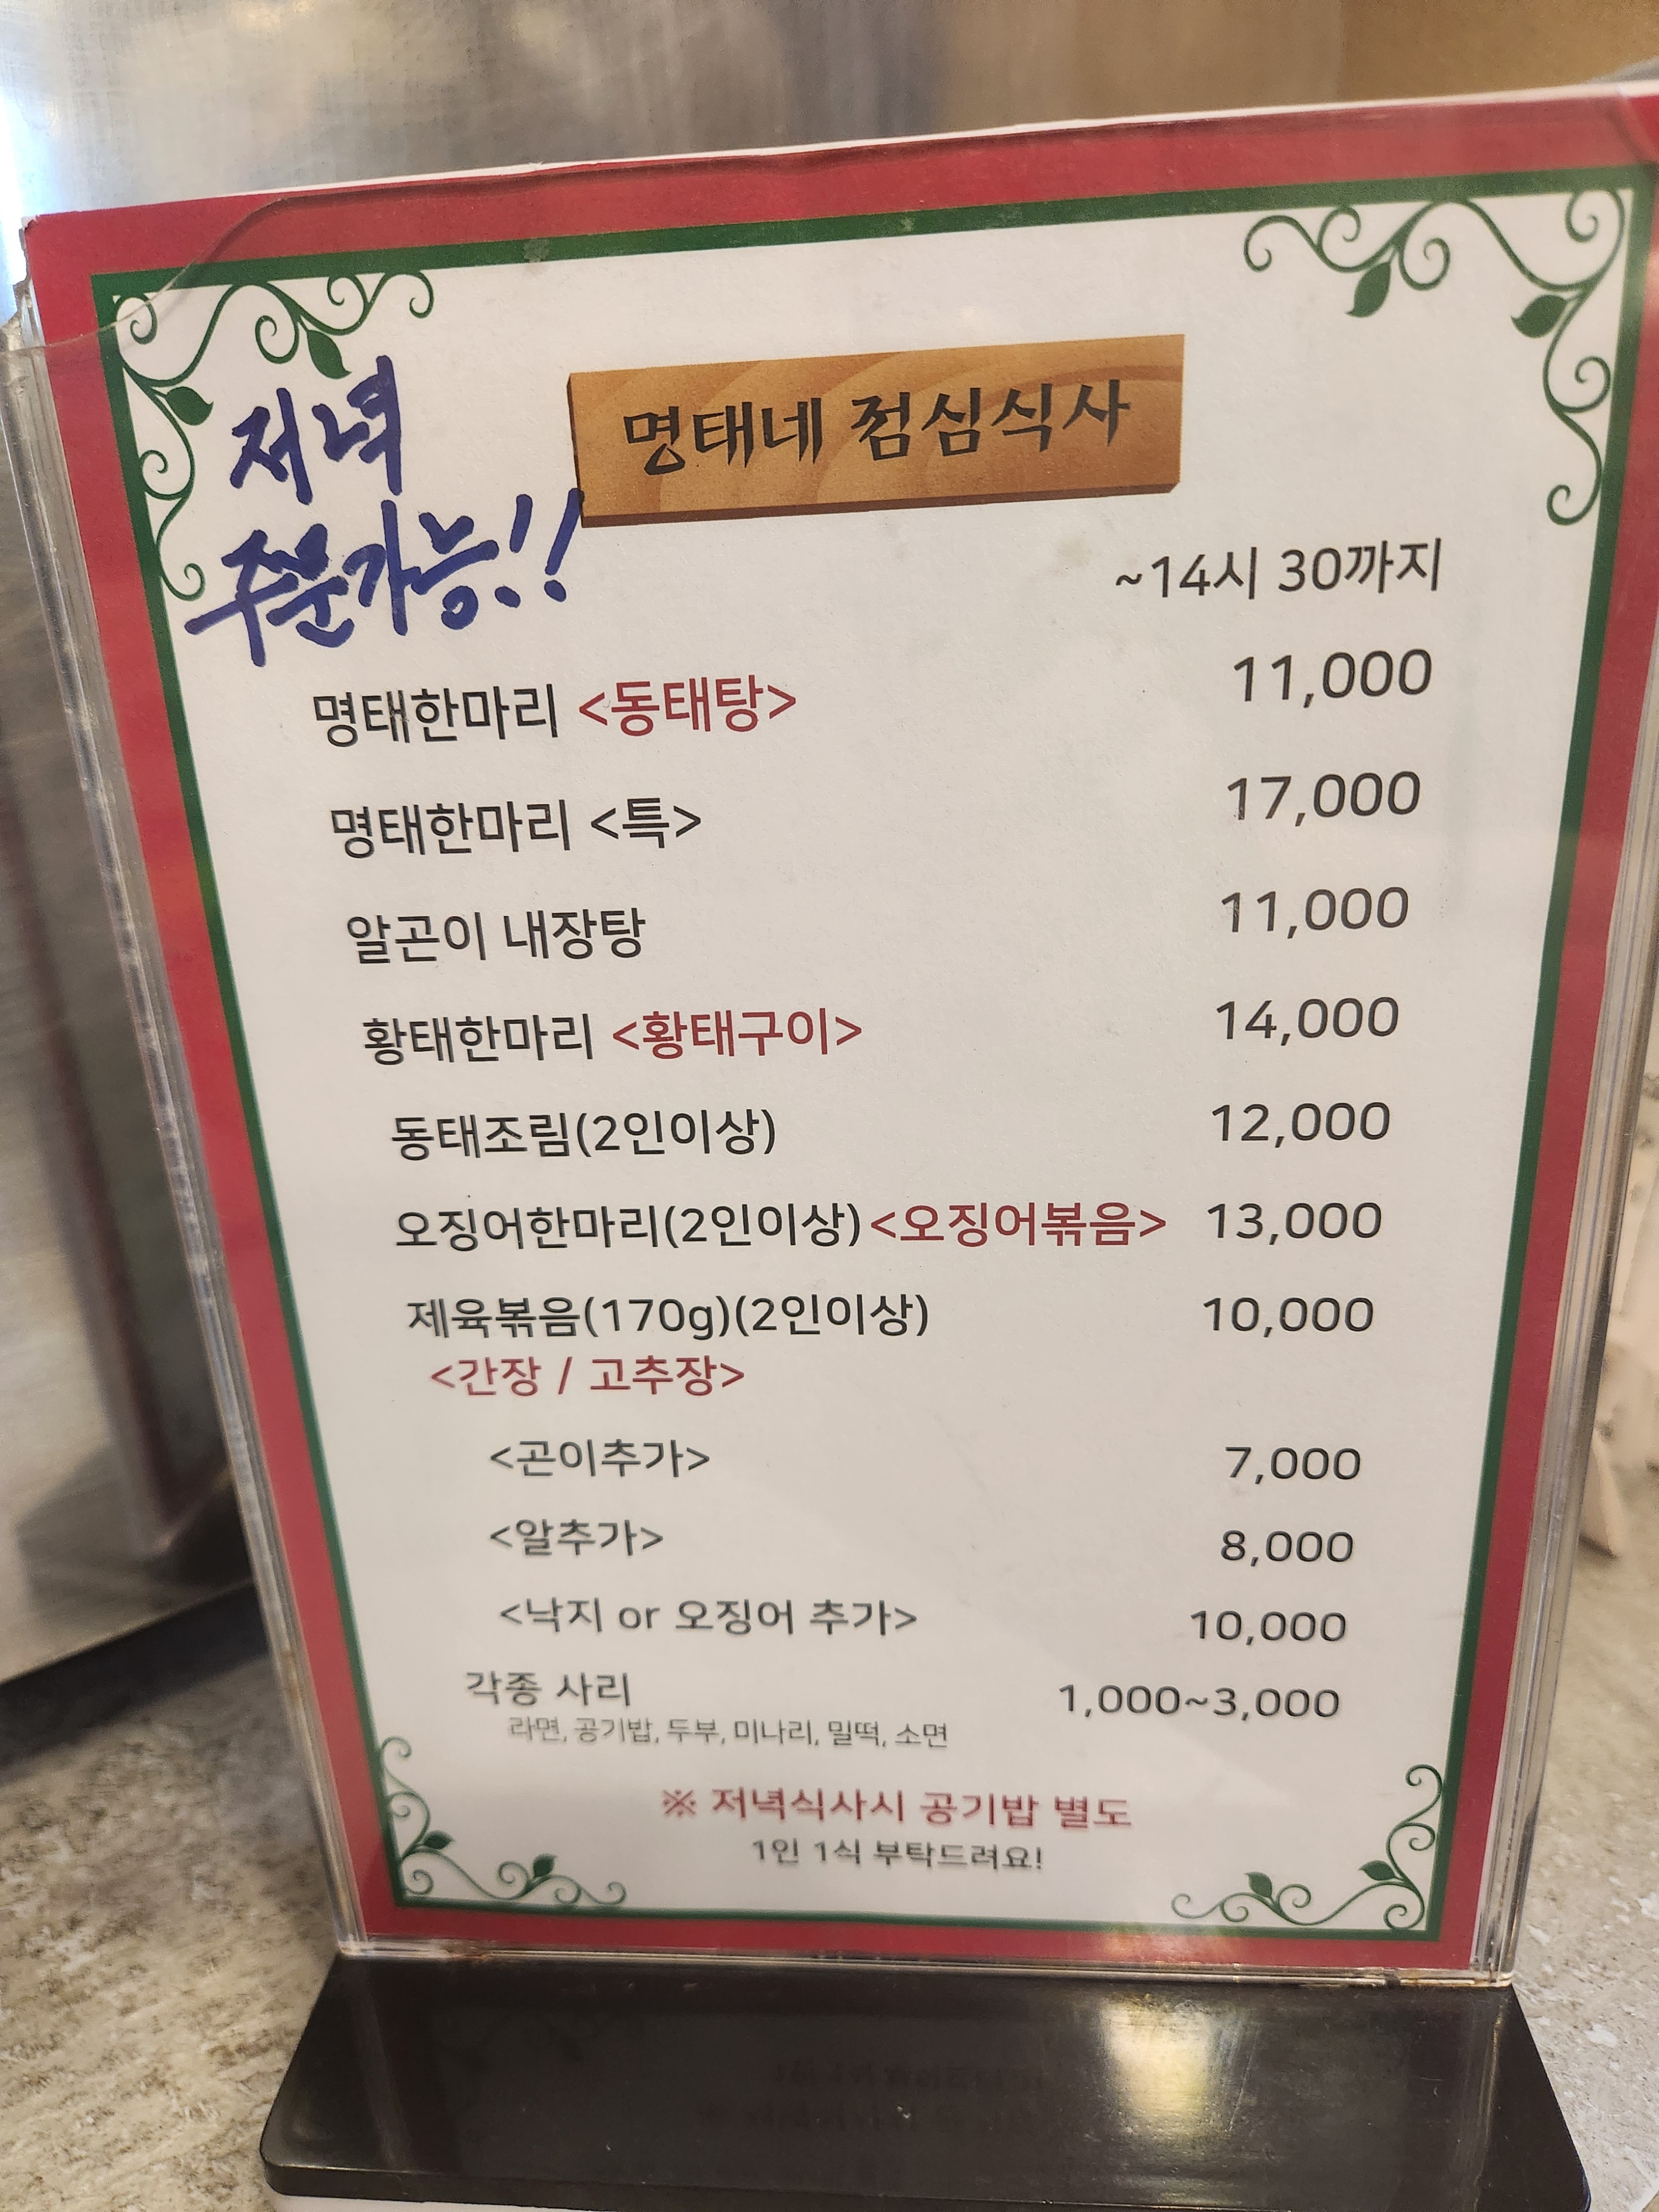 저녁
주문가능!!
명태네 점심식사
~14시 30까지
명태한마리 <동태탕> 11,000
명태한마리 <특> 17,000
알곤이 내장탕 11,000
황태한마리 <황태구이> 14,000
동태조림(2인이상) 12,000
오징어한마리(2인이상)<오징어볶음> 13,000
제육볶음(170g)(2인이상) 10,000
<간장 / 고추장>
<곤이추가> 7,000
<알추가> 8,000
<낙지 or 오징어 추가> 10,000
각종 사리 1,000~3,000
라면, 공기밥, 두부, 미나리, 밀떡, 소면
※ 저녁식사시 공기밥 별도
1인 1식 부탁드려요!